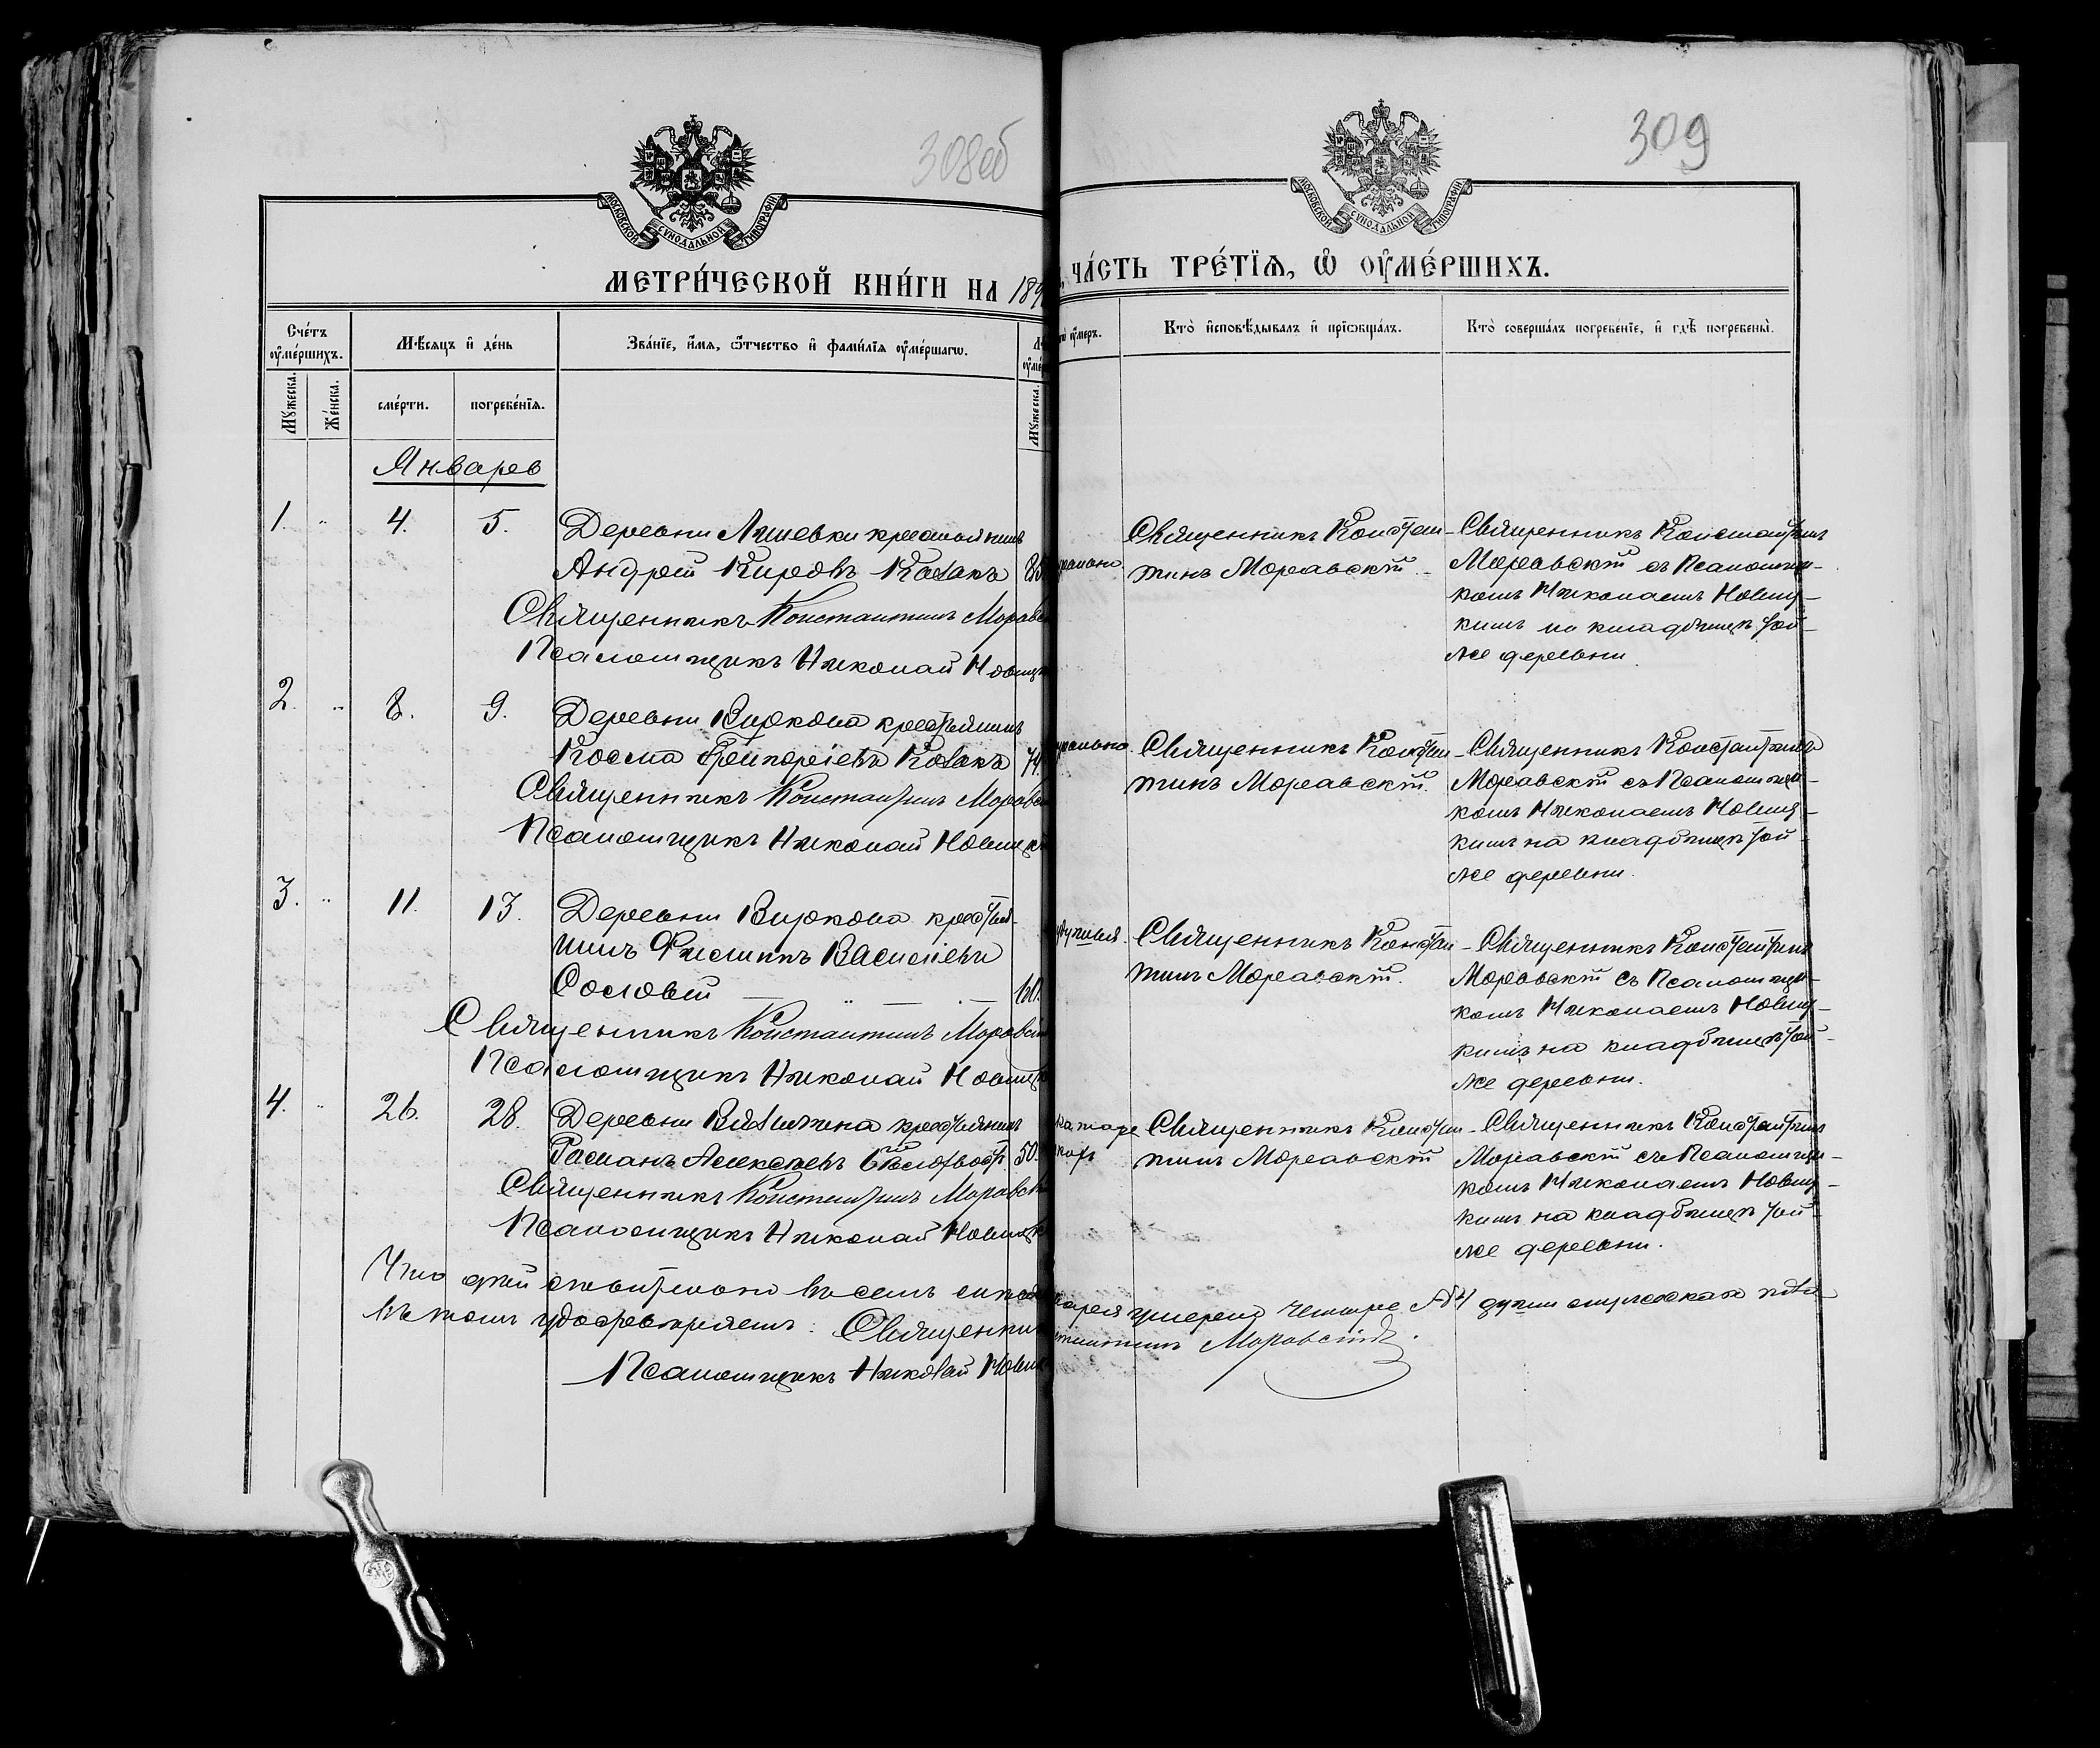 308об
309
МОСКОВСКОЙ СУНОДАЛЬНОЙ ТИПОГРАФІИ
МОСКОВСКОЙ СУНОДАЛЬНОЙ ТИПОГРАФІИ
МЕТРИ́ЧЕСКОЙ КНИ́ГИ НА 189
ЧА́СТЬ ТРЕ́ТІѦ, Ѽ ОУМЕ́РШИХЪ.
Сче́тъ оуме́ршихъ.
Мѣ́сяцъ и де́нь
Зва́ніе, и́мя, ѻ́тчество и фами́лія оуме́ршагѡ.
оуме́ръ.
Кто̀ исповѣ́дывалъ и пріѡбща́лъ.
Кто̀ соверша́лъ погребе́ніе, и гдѣ̀ погребены̀.
Мꙋ́жеска.
Же́нска.
сме́рти.
погребе́нїѧ.
Мꙋ́жеска.
Январь
1. " 4. 5. Деревни крестьянинъ
Андрей Кировъ Козакъ 85
Священникъ Константинъ Моравс
Псаломщикъ Николай Новиц
Священникъ Констан-
тинъ Моравскій
Священникъ Константинъ
Моравскій съ Псаломщи-
комъ Николаемъ Новиц-
кимъ на кладбищѣ той-
же деревни
2. " 8. 9. Деревни Виркова крестьянинъ
Косма Григоріевъ Козакъ 74.
Священникъ Константинъ Моравс
Псаломщикъ Николай Новицк
Священникъ Констан-
тинъ Моравскій.
Священникъ Константинъ
Моравскій съ Псаломщи-
комъ Николаемъ Новиц-
кимъ на кладбищѣ той
же деревни.
3. " 11. 13. Деревни Виркова крестья-
нинъ Филиппъ Василіевъ
Сословій 60.
Священникъ Константинъ Моравск
Псаломщикъ Николай Новицк
Священникъ Констан-
тинъ Моравскій.
Священникъ Константинъ
Моравскій съ Псаломщи-
комъ Николаемъ Новиц-
кимъ на кладбищѣ той-
же деревни.
4. " 26. 28. Деревни крестьянинъ
Романъ Алексѣевъ 50.
Священникъ Константинъ Моравск
Псаломщикъ Николай Новицк
Священникъ Констан-
тинъ Моравскій
Священникъ Константинъ
Моравскій съ Псаломщи-
комъ Николаемъ Новиц-
кимъ на кладбищѣ той-
же деревни.
Что дѣйствительно въ семъ
умерло четыре 4 души мужескаго пола
въ томъ удостовѣряемъ: Священни
Моравскій.
Псаломщикъ Николай Нови